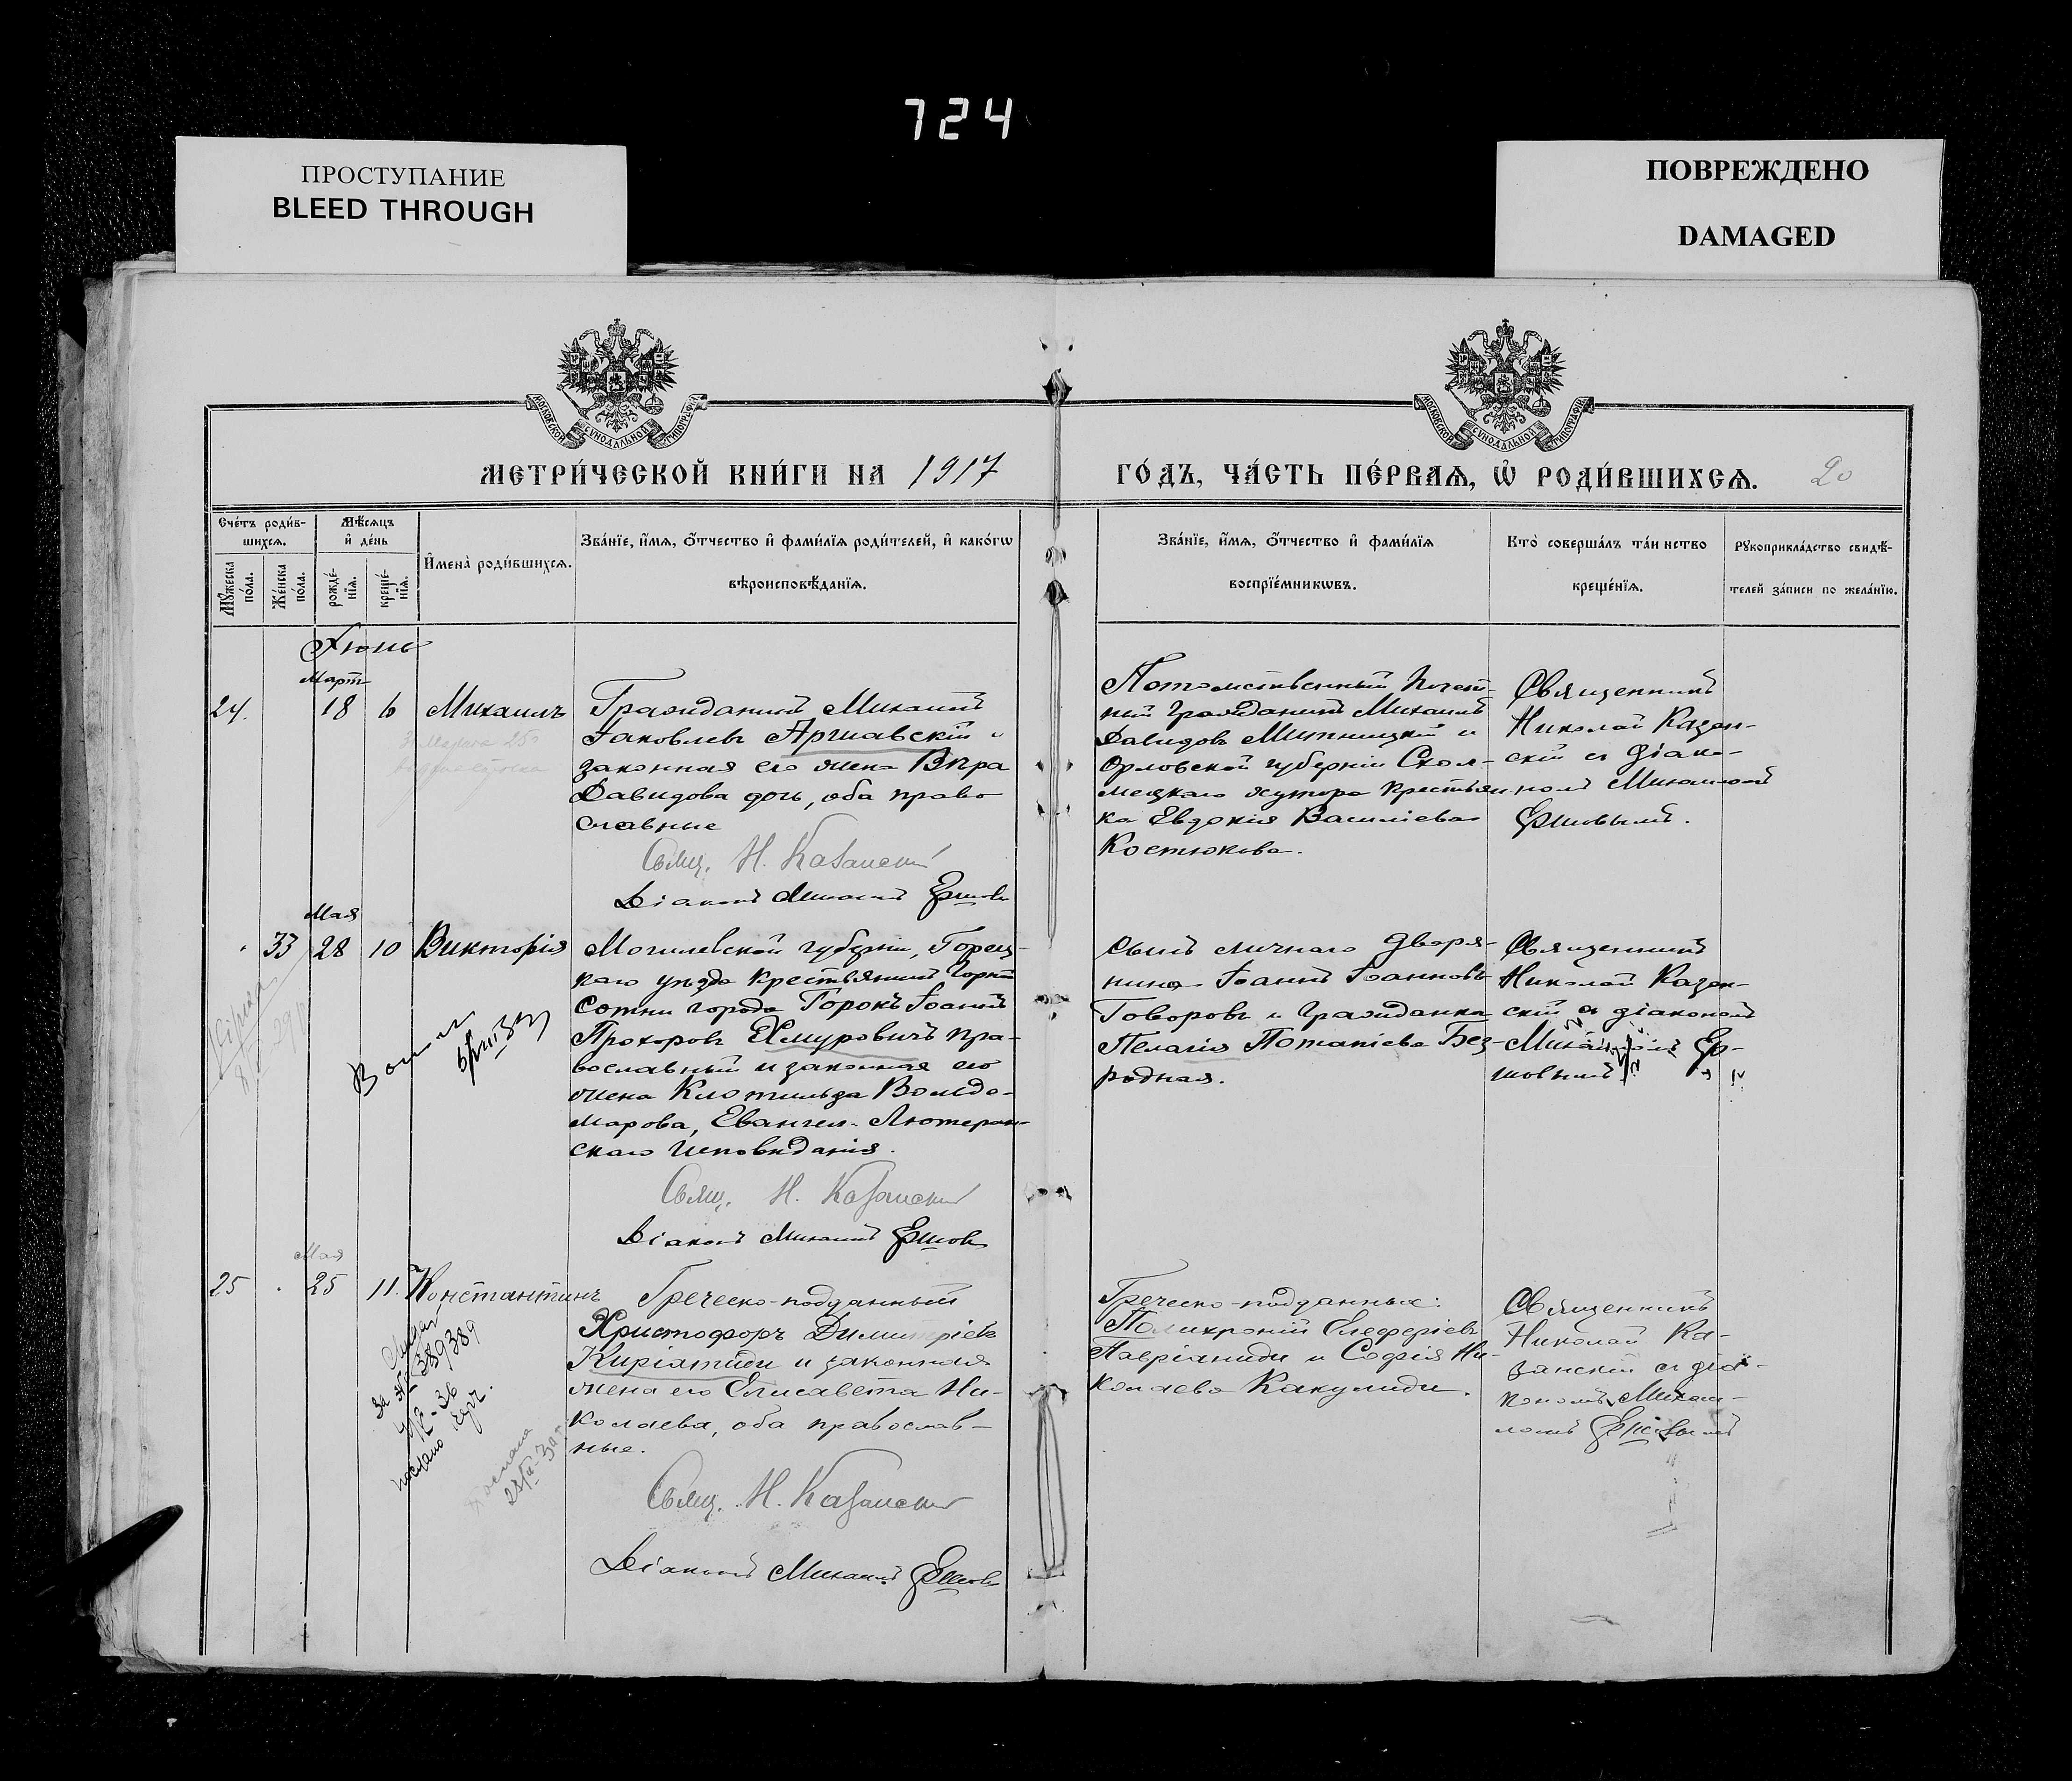 724
ПРОСТУПАНИЕ
BLEED THROUGH
ПОВРЕЖДЕНО
DAMAGED
МОСКОВСКОЙ СѴНОДАЛЬНОЙ ТИПОГРАФІИ
МОСКОВСКОЙ СѴНОДАЛЬНОЙ ТИПОГРАФІИ
МЕТРИ́ЧЕСКОЙ КНИ́ГИ НА 1917
ГО́ДЪ, ЧА́СТЬ ПЕ́РВАѦ, Ѡ҆ РОДИ́ВШИХСѦ. 20
Сче́тъ роди́в-
шихсѧ.
Мѣ́сѧцъ
и҆ де́нь
Мꙋ́жеска
по́ла.
Же́нска
по́ла.
рожде́-
нїѧ.
креще́-
нїѧ.
И҆мена̀ роди́вшихсѧ.
Зва́нїе, и҆́мѧ, ѻ҆́тчество и҆ фами́лїѧ роди́телей, и҆ како́гѡ
вѣроисповѣ́данїѧ.
Зва́нїе, и҆́мѧ, ѻ҆́тчество и҆ фами́лїѧ
воспрїе́мникѡвъ.
Кто̀ соверша́лъ та́инство
креще́нїѧ.
Рꙋкоприкла́дство свидѣ́-
телей за́писи по жела́нїю.
Іюнь
Март
24. 18 6 Михаилъ
Гражданинъ Михаилъ
Іаковлевъ Аршавскій и
законная его жена Вѣра
Давидова дочь, оба право
славные
Свящ. Н. Казанскій
Діаконъ Михаилъ Ершовъ
Потомственный Почет-
ный Гражданинъ Михаилъ
Давидовъ Митницкій и
Орловской губерніи
хутора крестьян
ка Евдокія Василіева
Костюкова.
Священникъ
Николай Казан-
скій съ діако-
номъ Михаиломъ
Ершовымъ.
Мая
33 28 10 Викторія
Могилевской губерніи, Горец-
каго уѣзда крестьянинъ
Сотни города Горокъ Іоаннъ
Прохоровъ Хмуровичъ пра-
вославный и законная его
жена Клотильда Вольде-
марова, Евангел.-Лютеран-
скаго исповѣданія.
Свящ. Н. Казанскій
Діаконъ Михаилъ Ершовъ
Сынъ личнаго Дворя-
нина Іоаннъ Іоанновъ
Говоровъ и Гражданка
Пелагія Потапіева Без-
родная.
Священникъ
Николай Казан-
скій съ діакономъ
Михаиломъ Ер-
шовымъ
Мая
25 25 11. Константинъ
за № 389389
послано
Греческо-подданный
Христофоръ Димитріевъ
Киріатиди и законная
жена его Елисавета Ни-
колаева, оба православ-
ные.
Свящ. Н. Казанскій
Діаконъ Михаилъ Ершовъ
Греческо-подданные:
Полихроній Елеферіевъ
Павріаниди и Софія Ни-
колаева Какулиди.
Священникъ
Николай Ка-
занскій съ діа-
кономъ Михаи-
ломъ Ершовымъ